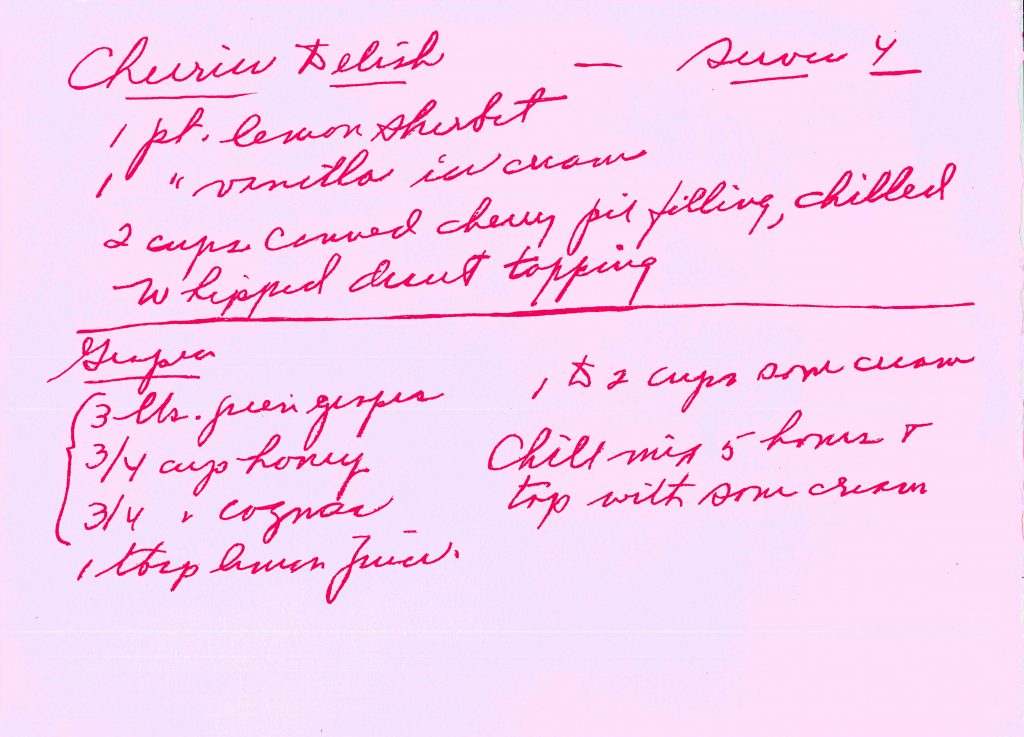 Cherries Delish — Serves 4
1 pt. lemon sherbet
1 " vanilla ice cream
2 cups canned cherry pie filling, chilled
Whipped desert topping
Grapes
3 lbs. green grapes
3/4 cup honey
3/4 " cognac
1 tbsp lemon juice.
1 to 2 cups sour cream
Chill mix 5 hours &
top with sour cream